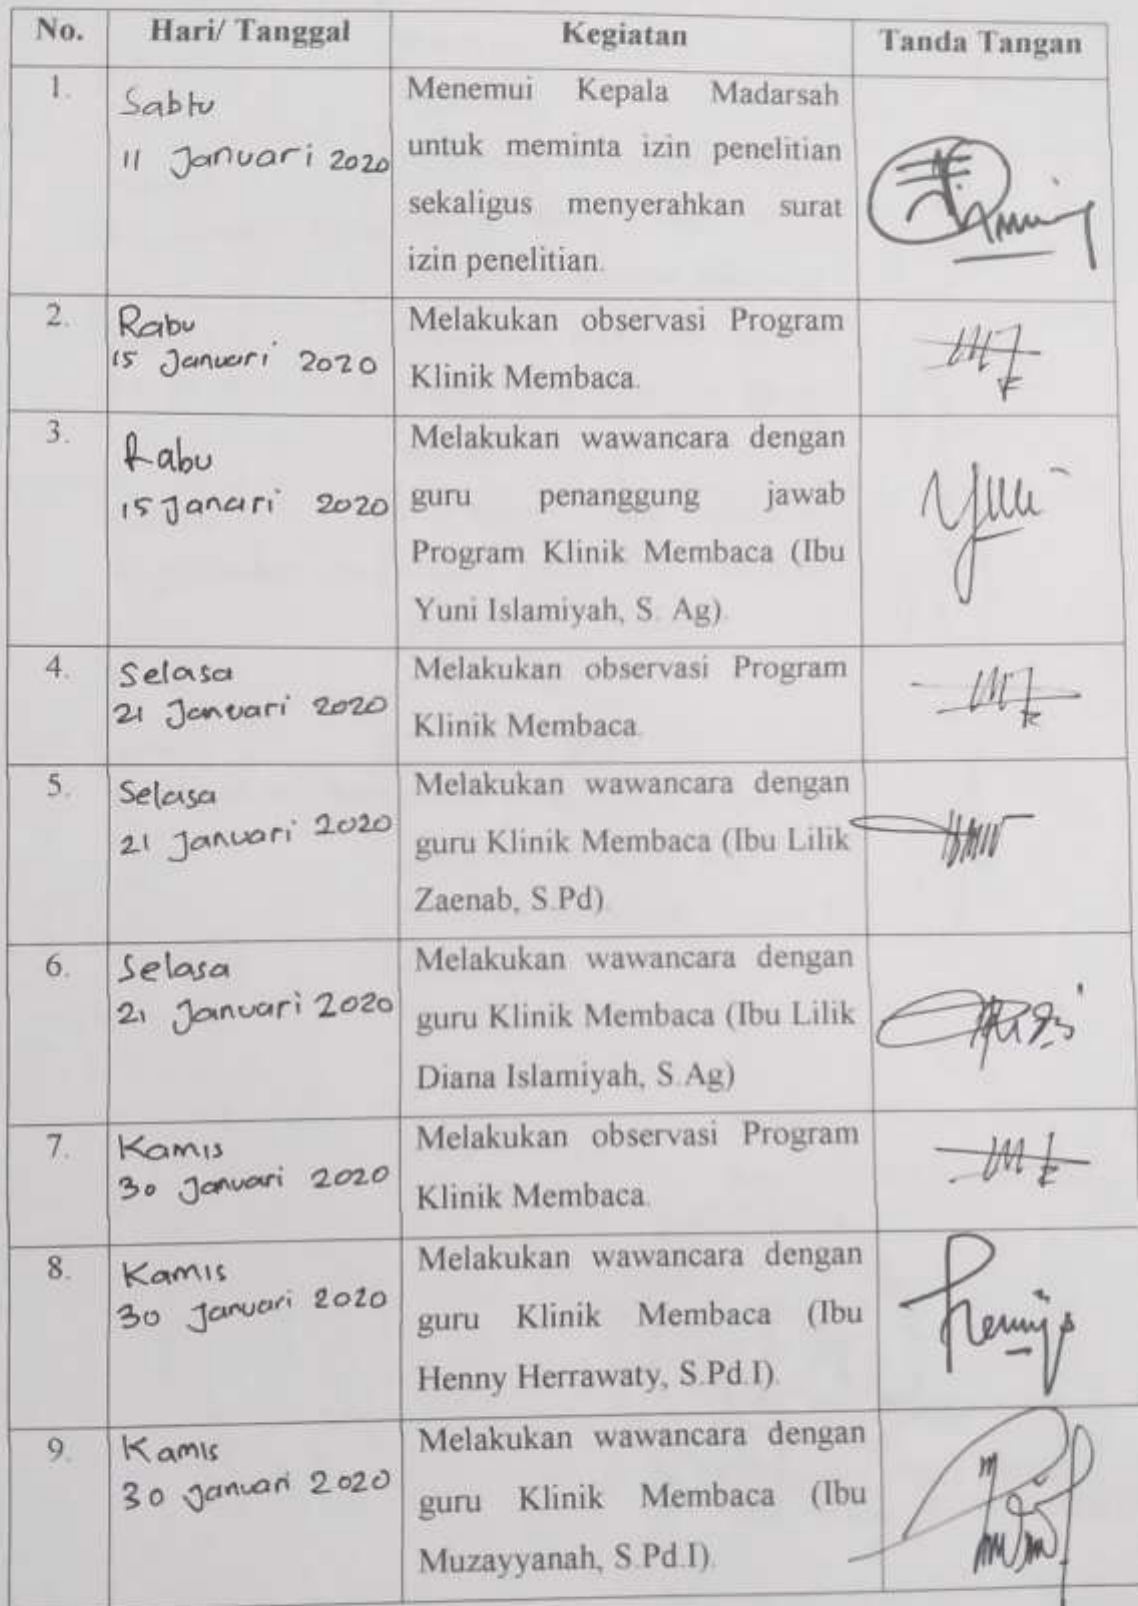 No. Hari/ Tanggal Kegiatan Tanda Tangan
1. Sabtu
11 Januari 2020
Menemui Kepala Madarsah
untuk meminta izin penelitian
sekaligus menyerahkan surat
izin penelitian.
2. Rabu
15 Januari 2020
Melakukan observasi Program
Klinik Membaca.
3. Rabu
15 Janari 2020
Melakukan wawancara dengan
guru penanggung jawab
Program Klinik Membaca (Ibu
Yuni Islamiyah, S. Ag).
4. Selasa
21 Januari 2020
Melakukan observasi Program
Klinik Membaca.
5. Selasa
21 Januari 2020
Melakukan wawancara dengan
guru Klinik Membaca (Ibu Lilik
Zaenab, S.Pd).
6. Selasa
21 Januari 2020
Melakukan wawancara dengan
guru Klinik Membaca (Ibu Lilik
Diana Islamiyah, S.Ag)
7. Kamis
30 Januari 2020
Melakukan observasi Program
Klinik Membaca.
8. Kamis
30 Januari 2020
Melakukan wawancara dengan
guru Klinik Membaca (Ibu
Henny Herrawaty, S.Pd.I).
9. Kamis
30 Januari 2020
Melakukan wawancara dengan
guru Klinik Membaca (Ibu
Muzayyanah, S.Pd.I).